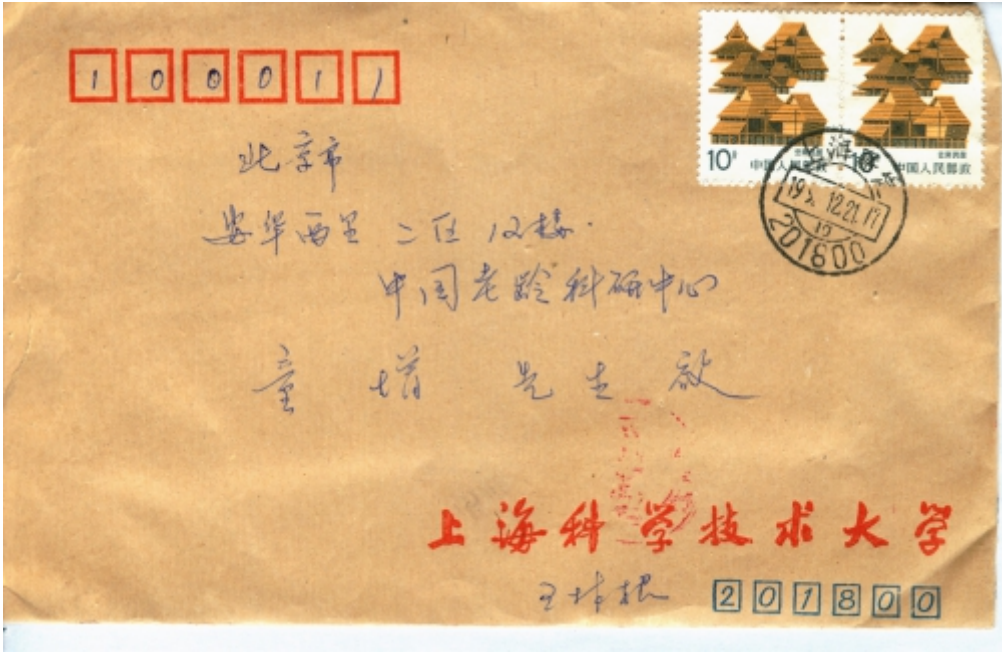 100011
10分 中国人民邮政
10分 中国人民邮政
上海
12.21.17
201800
北京市
安华西里 二区 12楼.
中国老龄科研中心
童 增 先生 启
上海科学技术大学
201800